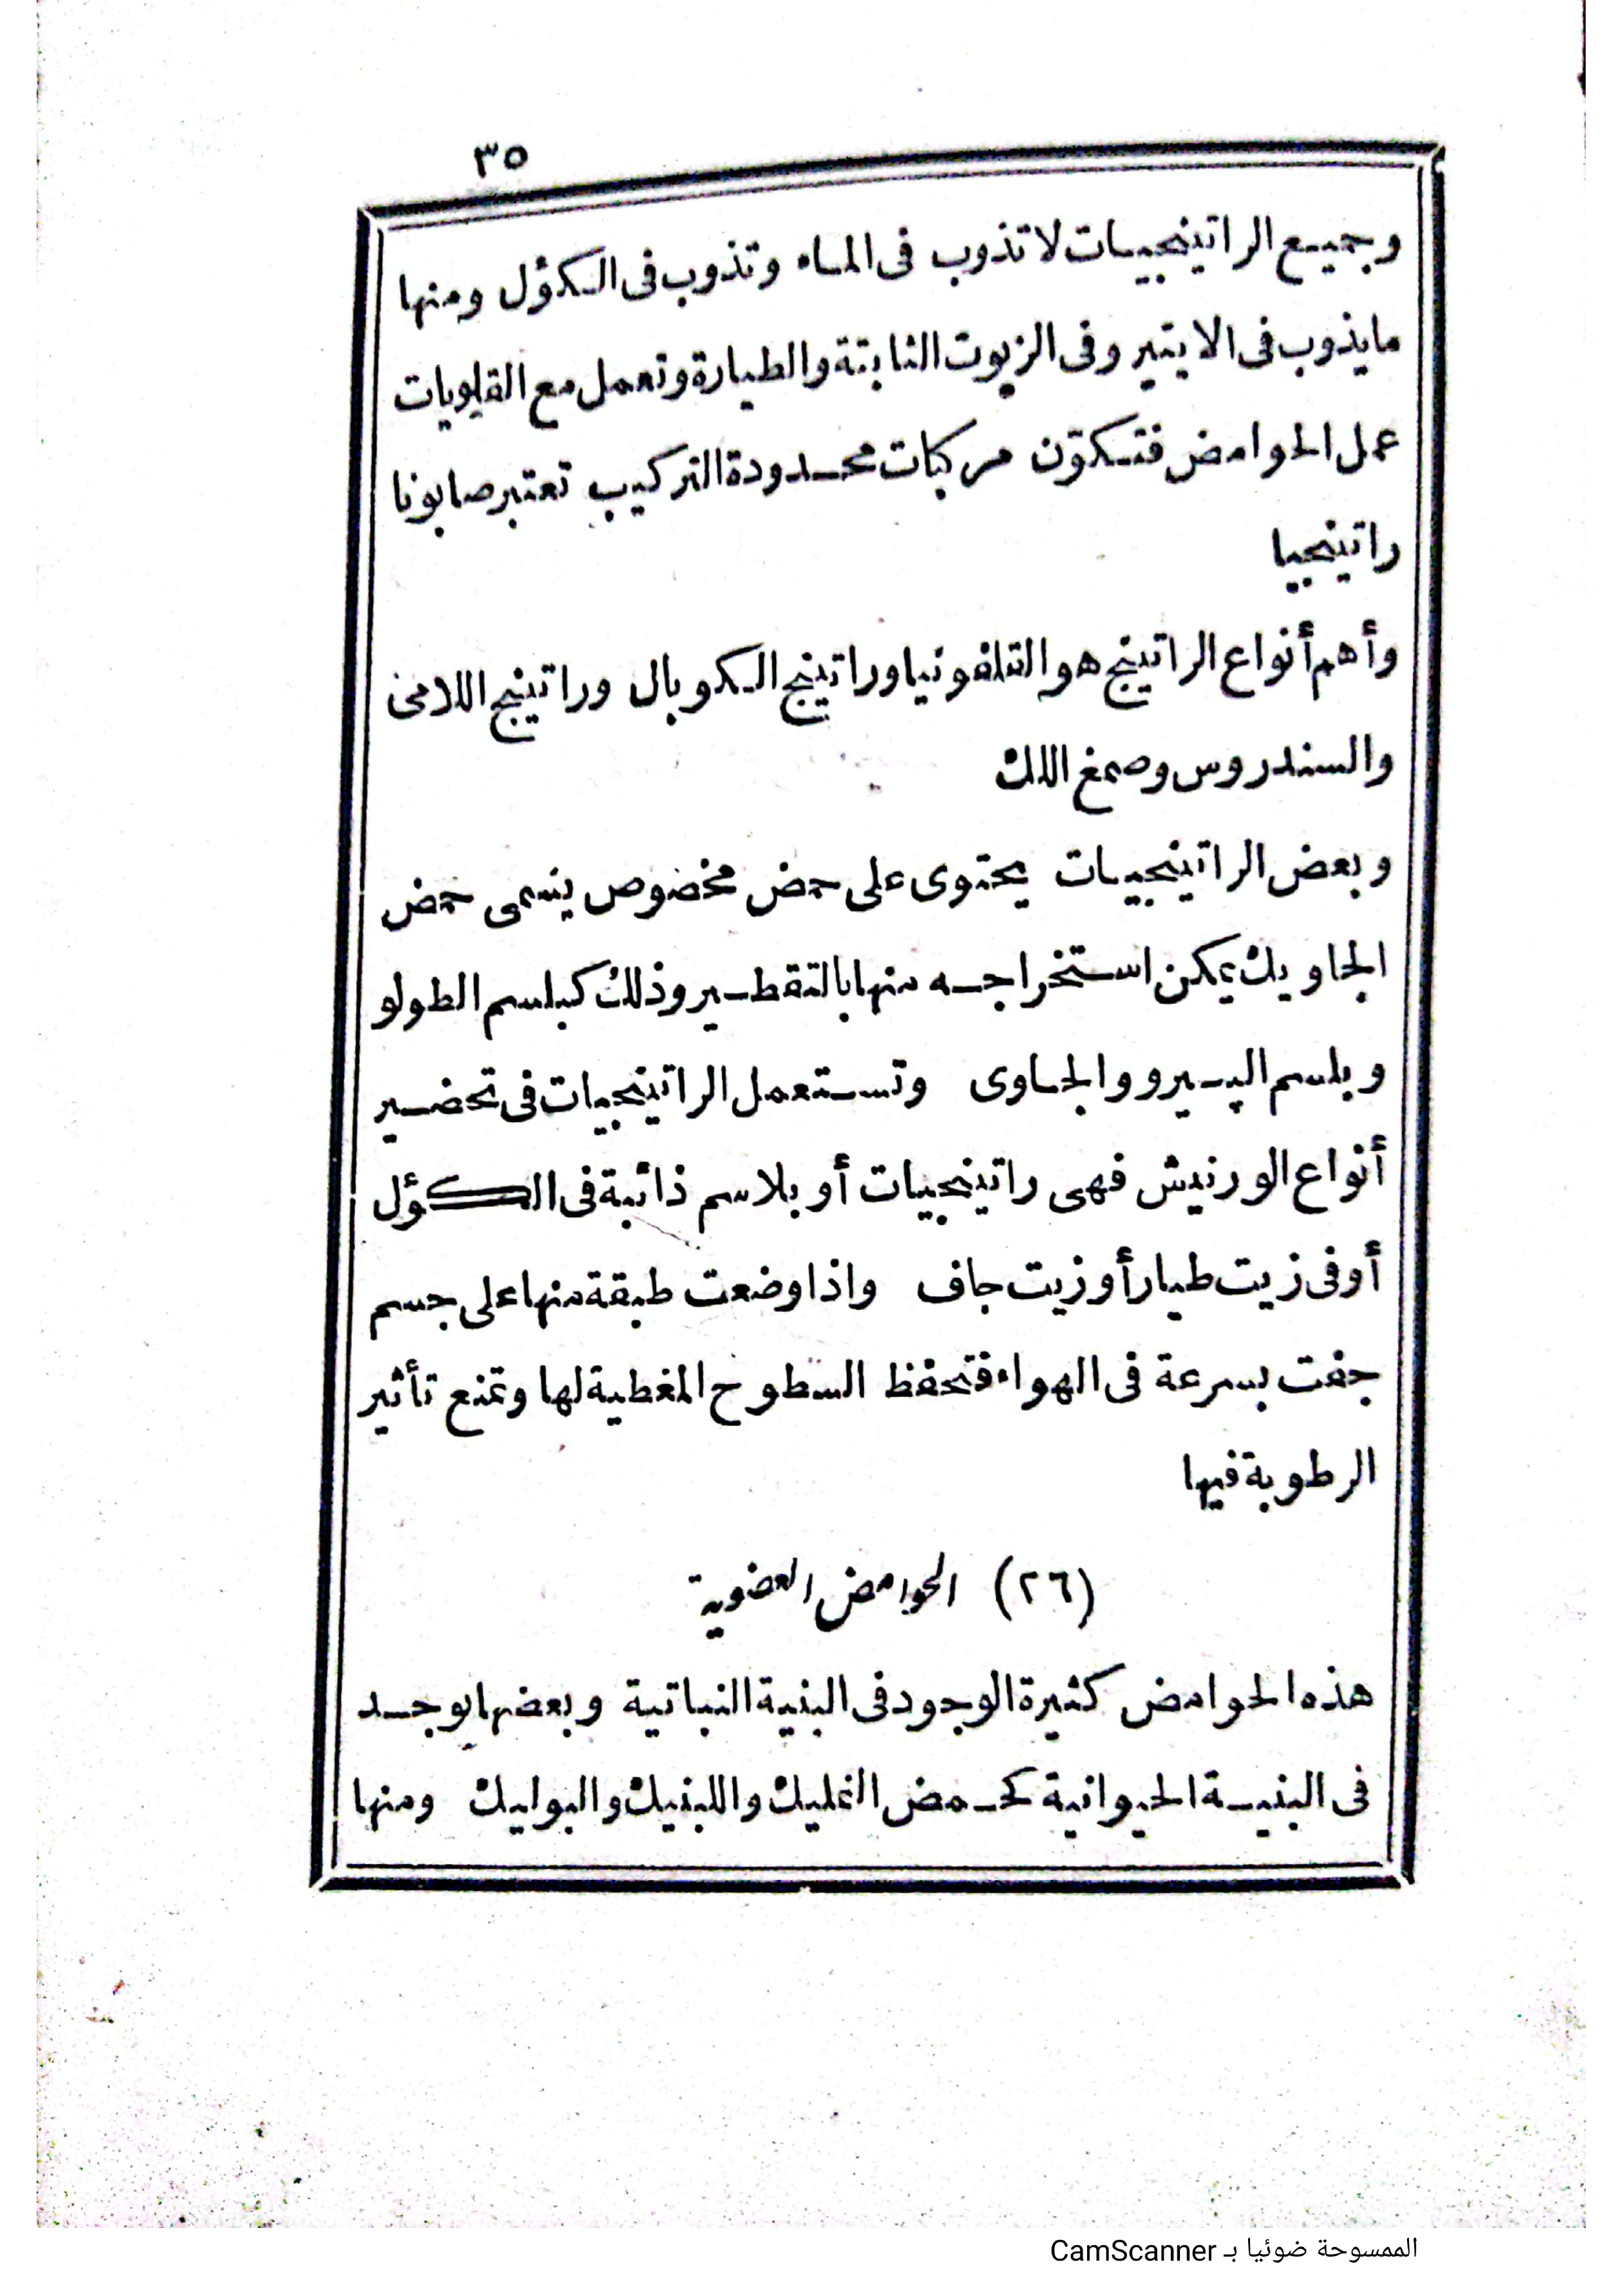 ٣٥
وجميع الراتينجيات لا تذوب فى الماء وتذوب فى الكؤل ومنها
مايذوب فى الايتير وفى الزيوت الثابتة والطيارة وتعمل مع القلويات
عمل الحوامض فتتكوّن مركبات محدودة التركيب تعتبر صابونا
راتينجيا
وأهم أنواع الراتينج هو القلفونيا وراتينج الكوبال وراتينج اللامى
والسندروس وصمغ اللك
وبعض الراتينجيات يحتوى على حمض مخصوص يسمى حمض
الجاويك يمكن استخراجه منها بالتقطير وذلك كبلسم الطولو
وبلسم الپيرو والجاوى وتستعمل الراتينجيات فى تحضير
أنواع الورنيش فهى راتينجيات أو بلاسم ذائبة فى الكؤل
أو فى زيت طيار أو زيت جاف واذا وضعت طبقة منها على جسم
جفت بسرعة فى الهواء فتحفظ السطوح المغطية لها وتمنع تأثير
الرطوبة فيها
(٢٦) الحوامض العضوية
هذه الحوامض كثيرة الوجود فى البنية النباتية وبعضها يوجد
فى البنية الحيوانية كحمض النمليك واللبنيك والبوليك ومنها
الممسوحة ضوئيا بـ CamScanner